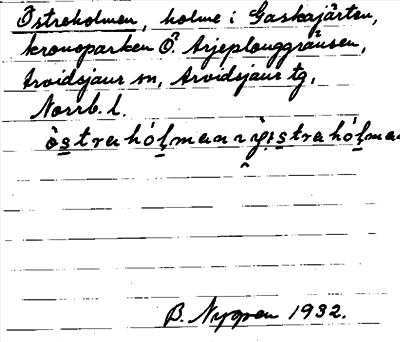 Östreholmen, holme i Gaskajärten,
kronoparken Ö. Arjeplouggränsen,
Arvidsjaur sn, Arvidsjaur tg,
Norrb. l.
B. Nygren 1932.